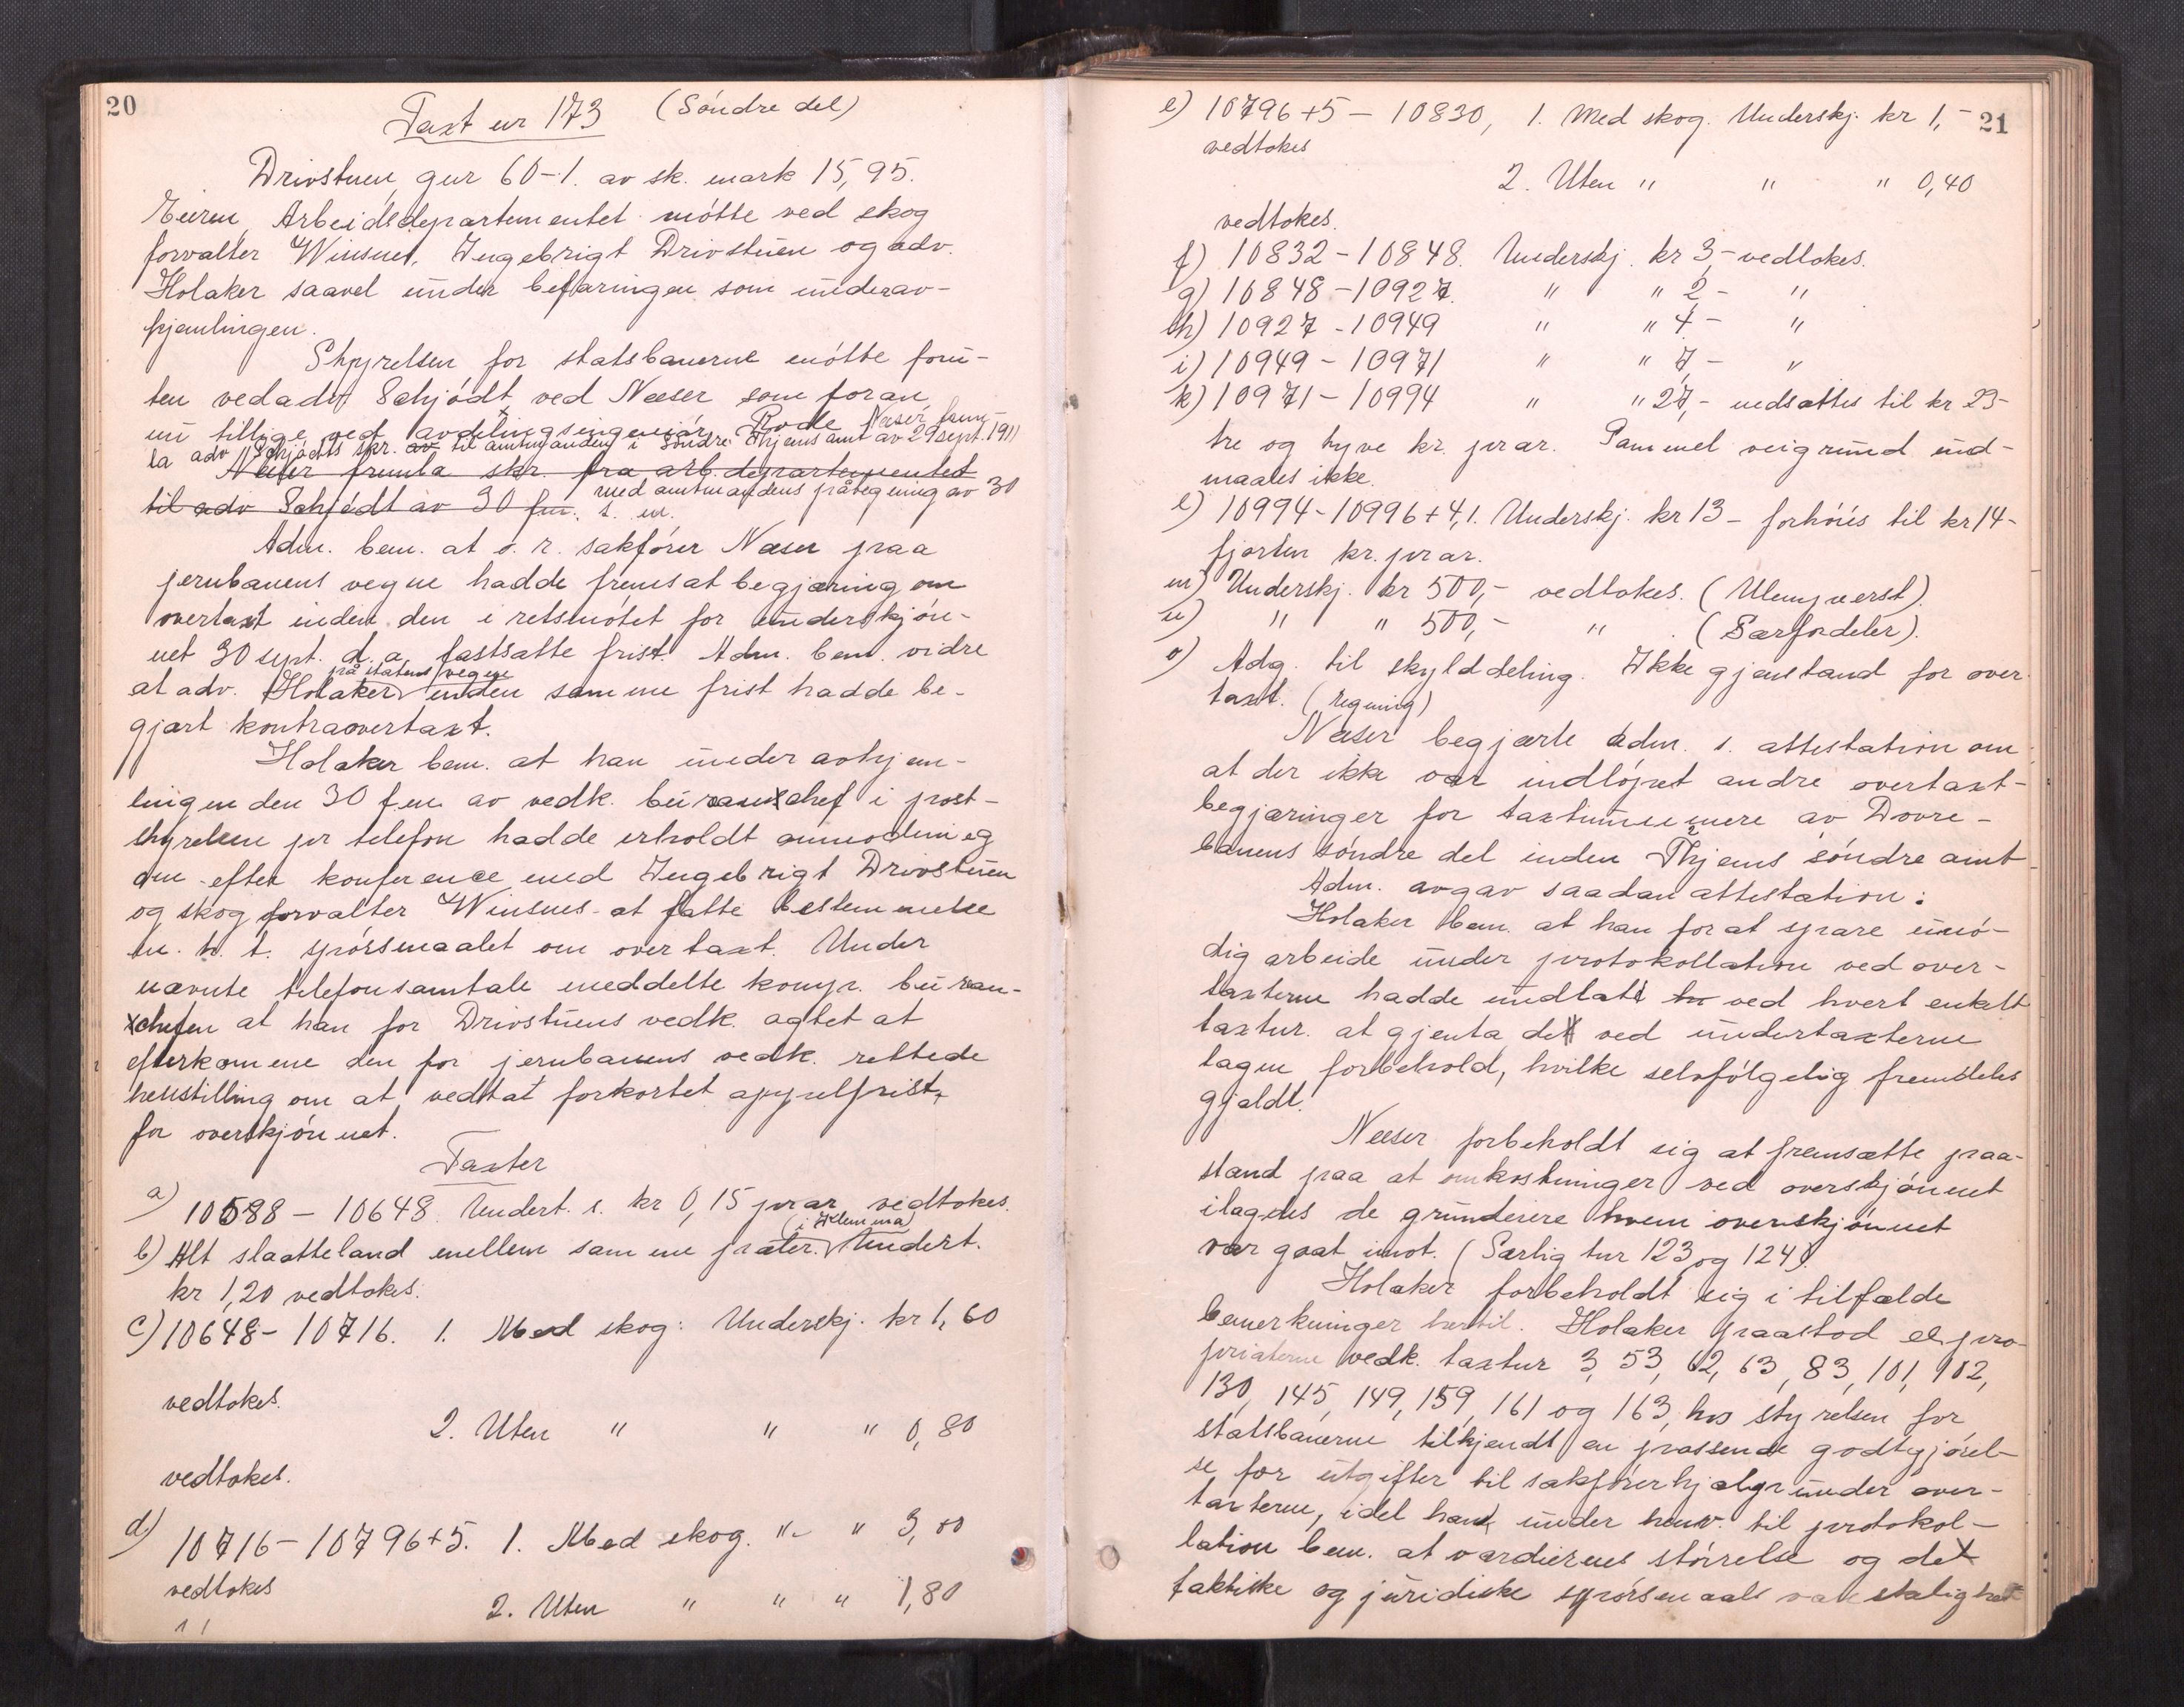 20
Taxt nr 173 (Søndre del)
Drivstuen, gnr 60-1. av sk. mark 15,95.
Eieren, Arbeidsdepartementet møtte ved skog
forvalter Winsnes, Ingebrigt Drivstuen og adv.
Holaker saavel under befaringen som under av-
hjemlingen.
Styrelsen for statsbanerne møtte foru-
ten ved adv Schjødt, ved Næser som foran
nu tillike ved avdelingsingeniør Rode. Næser frem-
la adv Schjødts skr. av til amtmanden i Søndre Thjems amt av 29 sept. 1911
Næser fremla skr. fra arb.departementet
med amtmandens påtegning av 30
til adv Schjødt av 30 f.m. s. m.
Adm. bem. at o. r. sakfører Næser paa
jernbanens vegne hadde fremsat begjæring om
overtaxt inden den i retsmøtet for underskjøn-
net 30 sept. d. a. fastsatte frist. Adm. bem. vidre
på statens vegne
at adv. Holaker inden samme frist hadde be-
gjært kontraovertaxt.
Holaker bem. at han under avhjem-
lingen den 30 f.m. av vedk. bureauchef i post-
styrelsen pr telefon hadde erholdt anmodning
om efter konference med Ingebrigt Drivstuen
og skogforvalter Winsnes at fatte bestemmelse
m. h. t. spørsmaalet om overtaxt. Under
nævnte telefonsamtale meddelte komp. bureau-
chefen at han for Drivstuens vedk. agtet at
efterkomme den for jernbanens vedk. rettede
henstilling om at vedtat forkortet appelfrist
for overskjønnet.
Taxter
a) 10588 - 10648. Undert. s. kr 0,15 pr ar vedtokes.
(i Klemma)
b) Alt slaatteland mellem samme pæler. Undert.
kr 1,20 vedtokes.
c) 10648 - 10716. 1. Med skog: Underskj. kr 1,60
vedtokes.
2. Uten " " " 0,80
vedtokes.
d) 10716 - 10796+5. 1. Med skog. " " 3,00
vedtokes
2. Uten " " " 1,80
" "
21
e) 10796+5 - 10830, 1. Med skog. Underskj. kr 1,-
vedtokes
2. Uten " " " 0,40
vedtokes.
f) 10832 - 10848. Underskj. kr 3,- vedtokes.
g) 10848 - 10927. " " 2,- "
h) 10927 - 10949 " " 4- "
i) 10949 - 10971 " " 7,- "
k) 10971 - 10994 " " 27,- nedsattes til kr 23-
tre og tyve kr. pr ar. Gammel veigrund ind-
maales ikke.
l) 10994 - 10996+4,1. Underskj. kr 13- forhøies til kr 14-
fjorten kr. pr ar.
m) Underskj. kr 500,- vedtokes. (Ulemp.erst).
n) " " 500,- " (Særfordeler).
o) Adg. til skylddeling. Ikke gjenstand for over
taxt. (regning)
Næser begjærte adm. s. attestation om
at der ikke var indløpet andre overtaxt-
begjæringer for taxtnumere av Dovre-
banens søndre del inden Thjems søndre amt
Adm. avgav saadan attestation.
Holaker bem. at han for at spare unø-
dig arbeide under protokollation ved over-
taxterne hadde undlatt ved hvert enkelt
taxtnr. at gjenta det ved undertaxterne
tagne forbehold, hvilke selvfølgelig fremdeles
gjaldt.
Næser forbeholdt sig at fremsætte paa-
stand paa at omkostninger ved overskjønnet
ilagdes de grundeiere hvem overskjønnet
var gaat imot. (Særlig tnr 123 og 124).
Holaker forbeholdt sig i tilfælde
bemerkninger hertil. Holaker paastod expro-
priaterne vedk. taxtnr 3, 53, 62, 63, 83, 101, 102,
130, 145, 149, 159, 161 og 163, hos styrelsen for
statsbanerne tilkjendt en passende godtgjørel-
se for utgifter til sakførerhjælp under over-
taxterne, idet han under henv. til protokol-
lation bem. at værdiernes størrelse og det
faktiske og juridiske spørsmaals vanskelighet